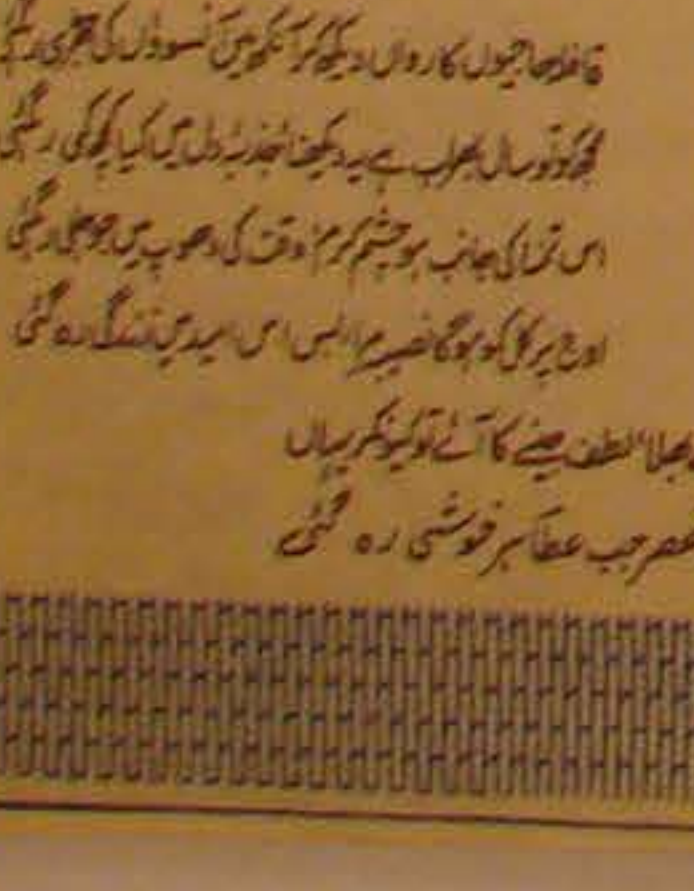 قافلہ حاجیوں کا رواں دیکھ کر آنکھ میں آنسوؤں کی جھڑی رہ گئی
مجھ کو تو سال بھر اب ہے یہ دیکھنا جذبۂ دل میں کیا کچھ کمی رہ گئی
اس کی جانب ہو چشم کرم وقت کی دھوپ میں جو رہ گئی
اوج پر کل کو ہوگا نصیب مرا بس اس امید میں زندگی رہ گئی
بھلا لطف جینے کا آئے تو کیونکر یہاں
عصر جب عطا پر خوشی رہ گئی